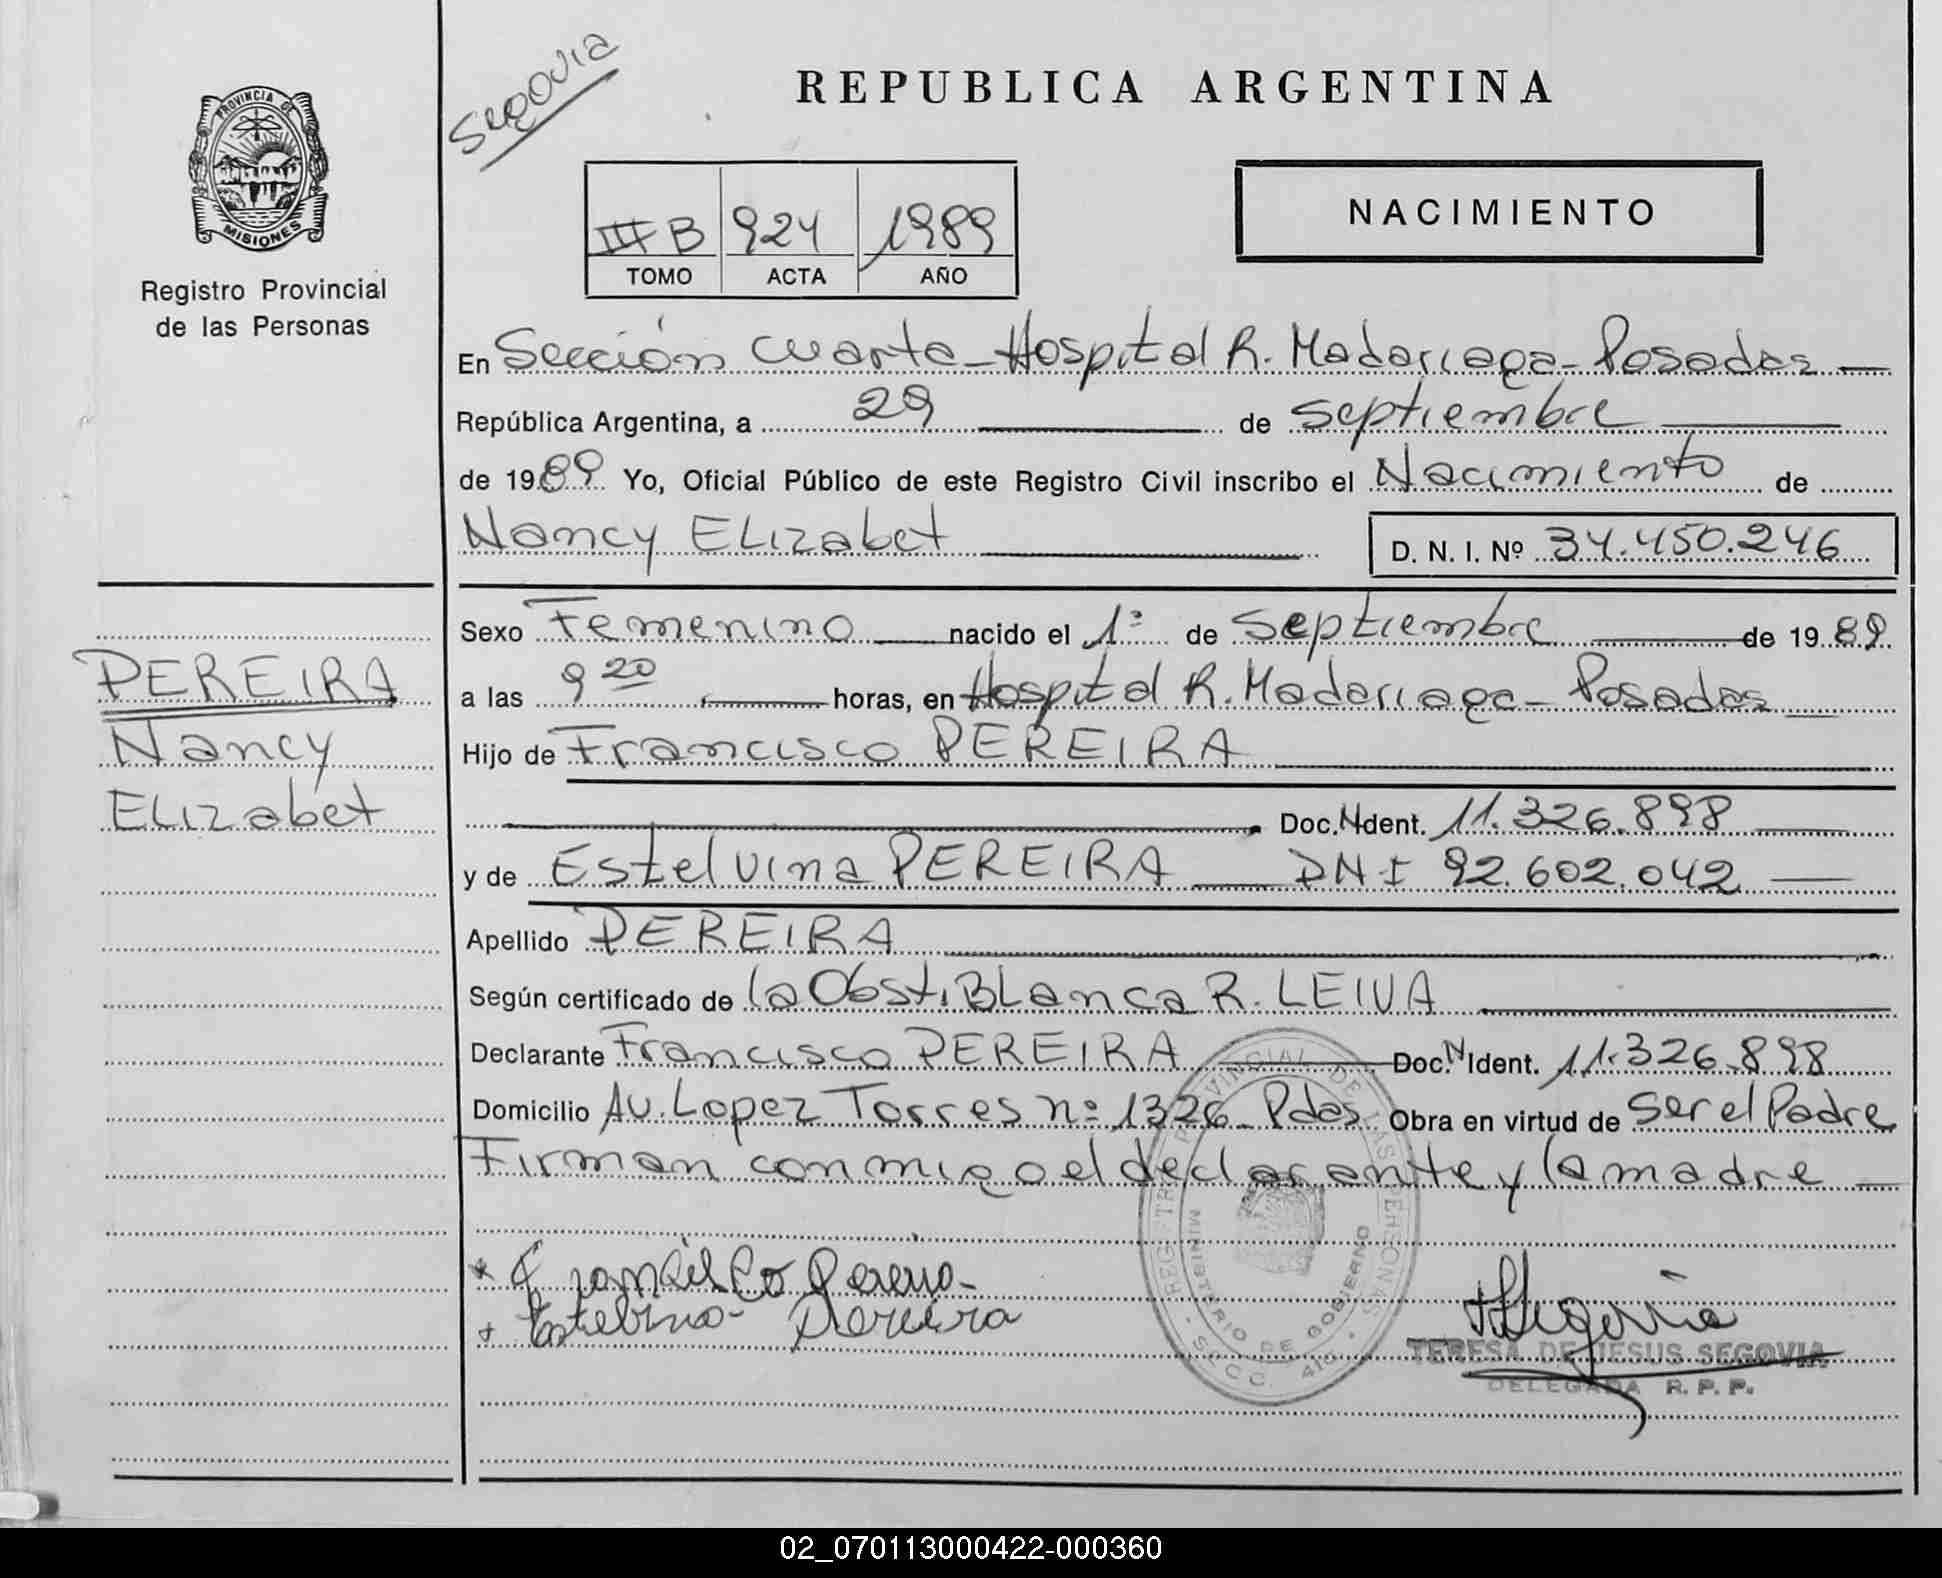 Segovia
REPUBLICA ARGENTINA
PROVINCIA DE
MISIONES
Registro Provincial
de las Personas
III B 924 1989
TOMO ACTA AÑO
NACIMIENTO
En Sección cuarta - Hospital R. Madariaga - Posadas
República Argentina, a 29 de septiembre
de 1989 Yo, Oficial Público de este Registro Civil inscribo el Nacimiento de
Nancy Elizabet D. N. I. Nº 34.450.246
Sexo Femenino nacido el 1º de septiembre de 1989
a las 9 20 horas, en Hospital R. Madariaga - Posadas
Hijo de Francisco PEREIRA
Doc. N Ident. 11.326.898
y de Estelvina PEREIRA DNI 92.602.042
Apellido PEREIRA
Según certificado de la Obst. Blanca R. LEIVA
Declarante Francisco PEREIRA Doc. N Ident. 11.326.898
Domicilio Av. Lopez Torres nº 1326 - Pdas Obra en virtud de ser el Padre
Firman conmigo el declarante y la madre
PEREIRA
Nancy
Elizabet
Francisco Pereira
Estelvina Pereira
REGISTRO PROVINCIAL DE LAS PERSONAS
MINISTERIO DE GOBIERNO
SECC. 4ta.
Segovia
TERESA DE JESUS SEGOVIA
DELEGADA R. P. P.
02_070113000422-000360